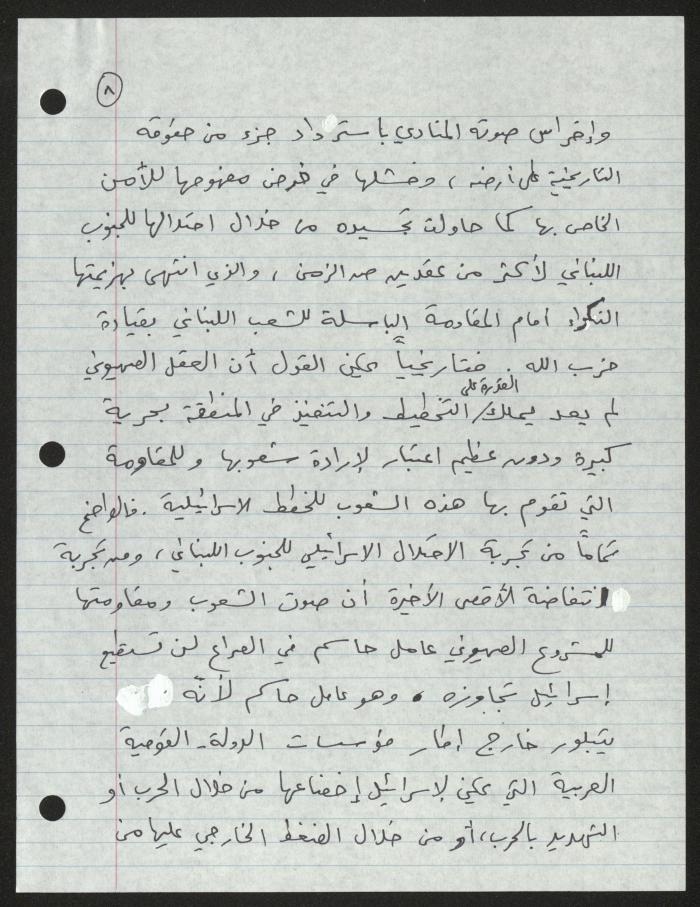 ٨
وإخراس صوته المنادي باسترداد جزء من حقوقه
التاريخية على أرضه، وفشلها في فرض مفهومها للأمن
الخاص بها كما حاولت تجسيده من خلال احتلالها للجنوب
اللبناني لأكثر من عقدين من الزمن، والذي انتهى بهزيمتها
النكراء أمام المقاومة الباسلة للشعب اللبناني بقيادة
حزب الله. فتاريخياً يمكن القول أن العقل الصهيوني
القدرة على
لم يعد يملك / التخطيط والتنفيذ في المنطقة بحرية
كبيرة ودون عظيم اعتبار لإرادة شعوبها وللمقاومة
التي تقوم بها هذه الشعوب للخطط الاسرائيلية. فالواضح
تماماً من تجربة الاحتلال الاسرائيلي للجنوب اللبناني، ومن تجربة
انتفاضة الأقصى الأخيرة أن صوت الشعوب ومقاومتها
للمشروع الصهيوني عامل حاسم في الصراع لن تستطيع
إسرائيل تجاوزه، وهو عامل حاكم لأنّه
يتبلور خارج إطار مؤسسات الدولة - القومية
العربية التي يمكن لإسرائيل إخضاعها من خلال الحرب أو
التهديد بالحرب، أو من خلال الضغط الخارجي عليها من